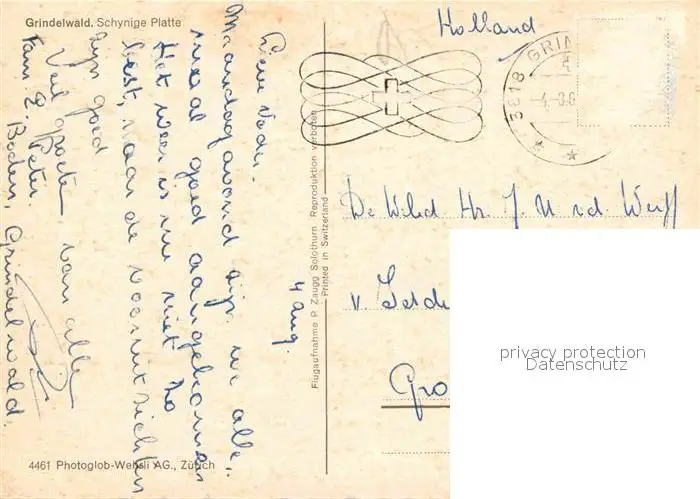 Grindelwald. Schynige Platte
Holland
3818 GRIN
4 aug.
Lieve Vader.
Maandagavond zijn we alle
maal goed aangekomen
Het weer is nu niet zo
best, maar de vooruitzichten
zijn goed
Veel groeten van alle
Peter.
Fam. P. Boden, Grindelwald.
Flugaufnahme P. Zaugg Solothurn Reproduktion verboten
Printed in Switzerland
De Wiled Hr. J. U v.d. Werff
Gro
privacy protection
Datenschutz
4461 Photoglob-Wehrli AG., Zürich